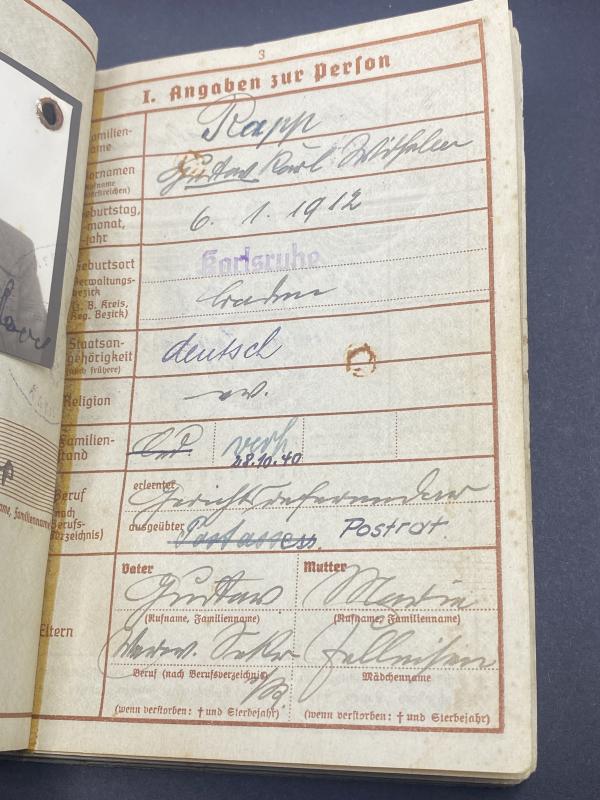 3
I. Angaben zur Person
Familien-
name
Rapp
Vornamen
(Rufname
unterstreichen)
Gustav Karl Wilhelm
Geburtstag,
-monat,
-jahr
6. 1. 1912
Geburtsort
Karlsruhe
Verwaltungs-
bezirk
(z. B. Kreis,
Reg. Bezirk)
Baden
Staatsan-
gehörigkeit
(auch frühere)
deutsch
Religion
ev.
Familien-
stand
led verh.
28.10.40
Beruf
(nach
Berufs-
verzeichnis)
erlernter
Gerichtsreferendar
ausgeübter
Postassess. Postrat.
Eltern
Vater
Gustav
(Rufname, Familienname)
Verw. Sekr
Beruf (nach Berufsverzeichnis)
(wenn verstorben: † und Sterbejahr)
Mutter
Maria
(Rufname, Familienname)
Felleisen
Mädchenname
(wenn verstorben: † und Sterbejahr)
name, Familienname)